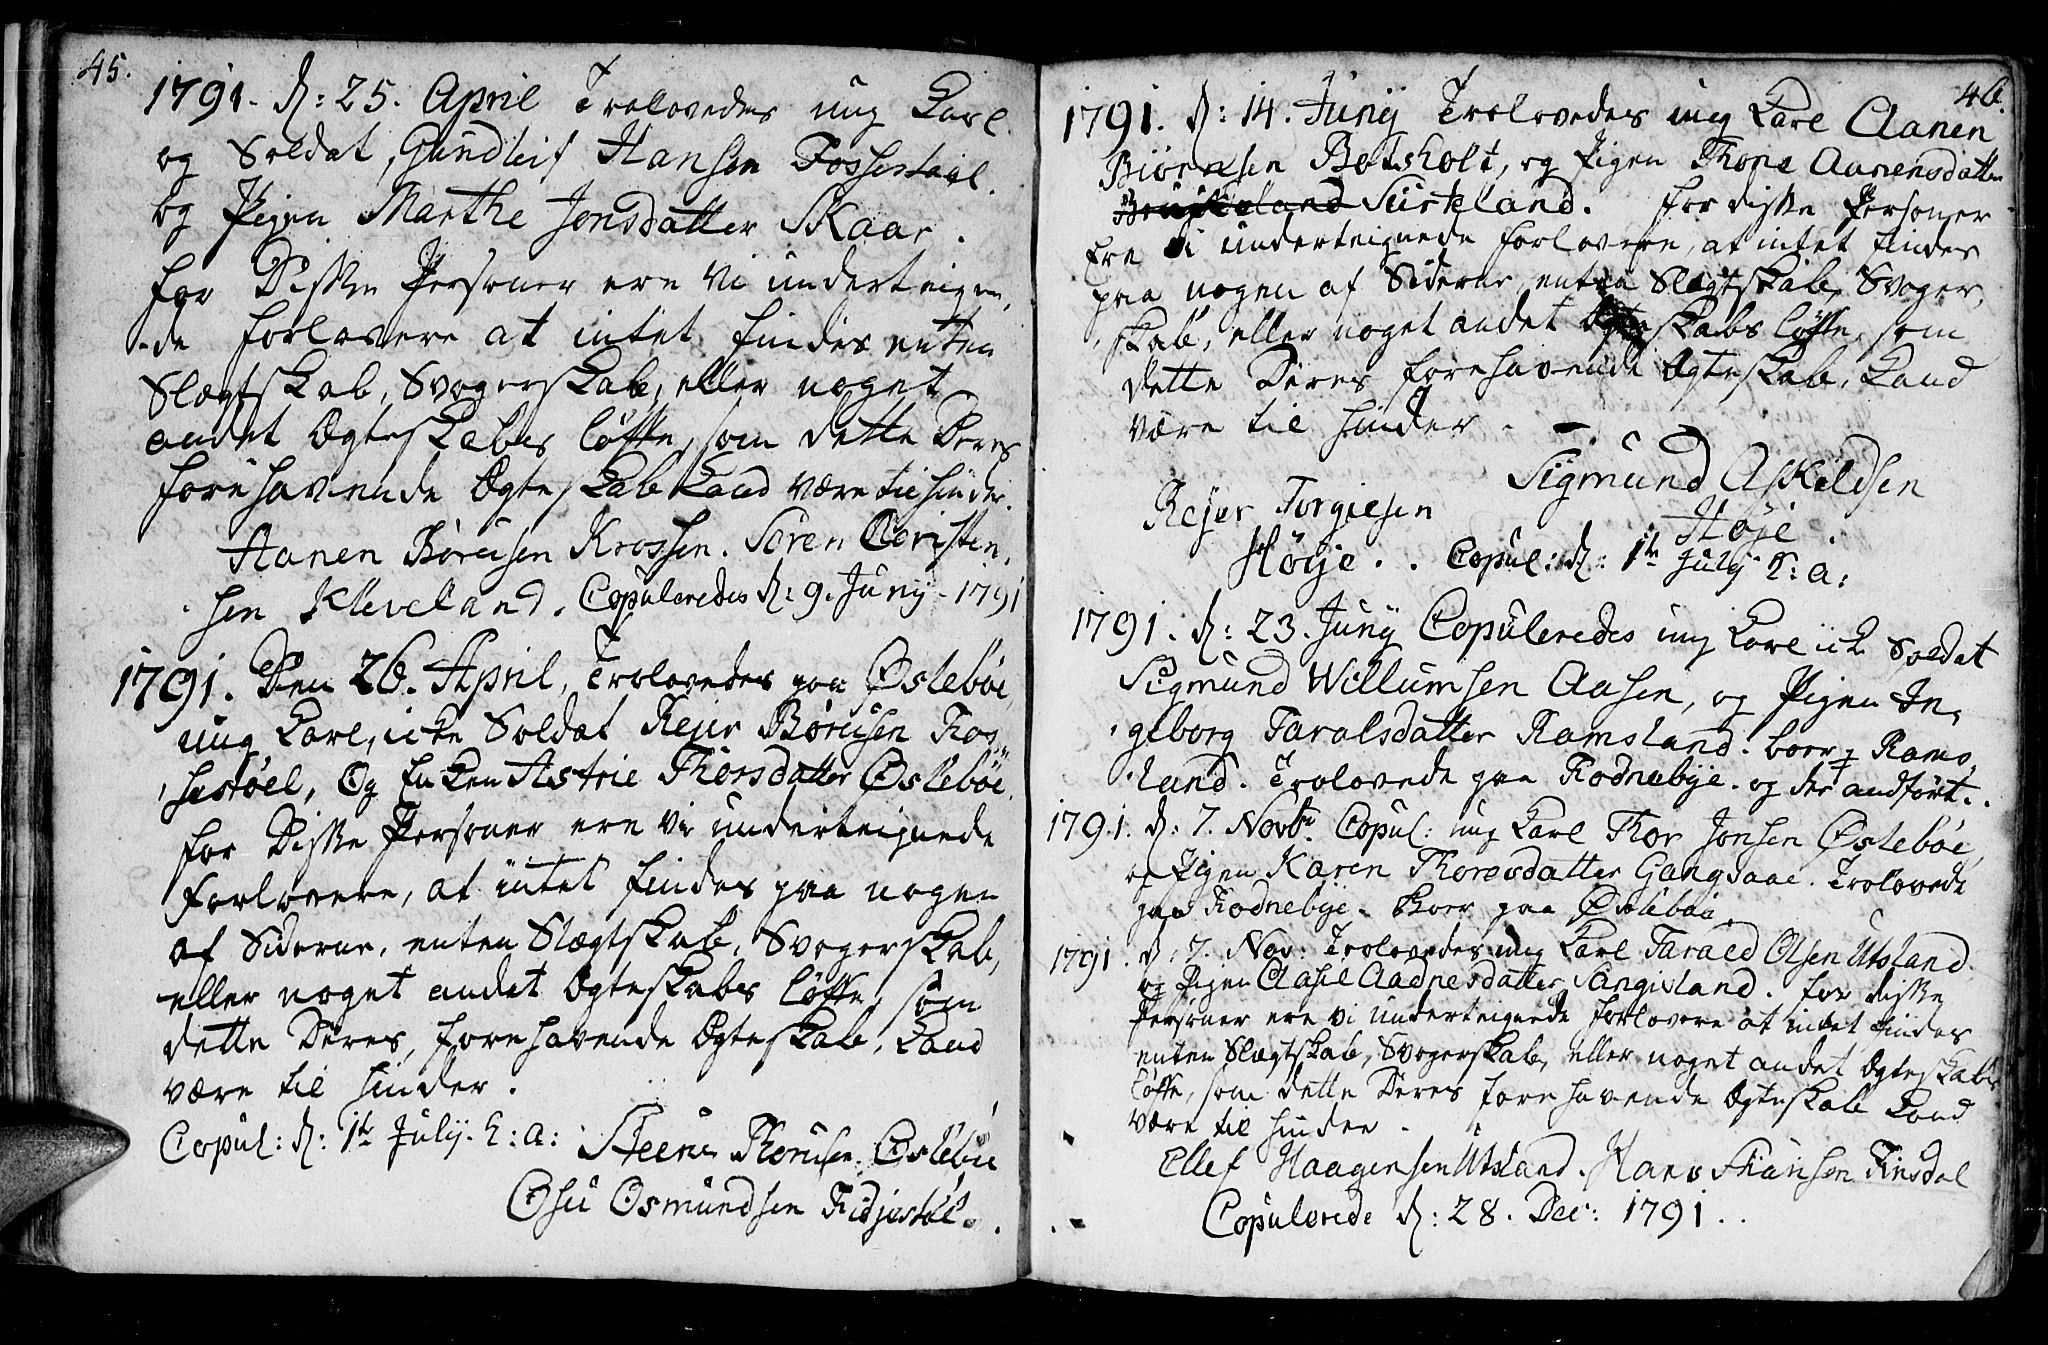 45.
1791. d: 25. April Trolovedes ung Karl
og Soldat, Gundleif Hansen Fossestøel.
og Pigen Marthe Jonsdatter Skaar.
for Disse Personer ere vi underteigne,
-de Forlovere at intet findes enten
Slægtskab, Svogerskab, eller noget
andet Ægteskabes løffte, som dette Deres
forehavende Ægteskab kand være til hinder.
Aanen Børusen Krossen. Søren Christen,
sen Kleveland. Copuleredes d: 9. Junÿ - 1791
1791. Den 26. April, Trolovedes paa Østebøe,
ung Karl, icke Soldat Rejer Børusen Fos
sestøel, Og Enken Astrie Thorsdatter Østebøe.
for Disse Personer ere vi underteignede
forlovere, at intet findes paa nogen
af Siderne, enten Slægtskab, Svogerskab,
eller noget andet Ægteskabes løffte, som
dette Deres, forehavende Ægteskab, kand
være til hinder.
Copul: d: 1te Julÿ. h: a: Steene Thorusen Østebøe
Osu Osmundsen Fidjestøel.
46.
1791. d: 14. Junÿ Trolovedes ung Karl Aanen
Biørnsen Botsholt, og Pigen Thone Aanensdatter
Sürkland. for disse Personer
Ere vi underteignede forlovere, at intet findes
paa nogen af Siderne, enten Slægtskab, Svoger,
skab, eller noget andet Ægteskabs løffte, som
dette Deres forehavende Ægteskab, kand
være til hinder.
Sigmund Askildsen
Rejer Torgiesen Høje.
Høije. Copul: d: 1te Julÿ h: a:
1791. d: 23. Junÿ Copuleredes ung Karl ick Soldat
Sigmund Willumsen Aasen, og Pigen In,
geborg Taralsdatter Ramsland. boer p Rams,
land. Trolovede paa Kodnebÿe. og der andført.
1791. d: 7. Novbr Copul: ung Karl Thor Jonsen Østebøe,
og Pigen Karen Thoresdatter Gangsaae. Trolovede
paa Kodnebÿe. Boer paa Østebøe.
1791. d: 7. Nov: Trolovedes ung Karl Tarald Olsen Utsland
og Pigen Aasil Aadnesdatter Sangisland. for disse
Personer ere vi underteignede forlovere at intet findes
enten Slægtskab, Svogerskab, eller noget andet Ægteskabs
løffte, som dette Deres forehavende Ægteskab kand
være til hinder.
Ellef Haagensen Utsland. Hans Finsdal
Copulerede d: 28. Dec: 1791.